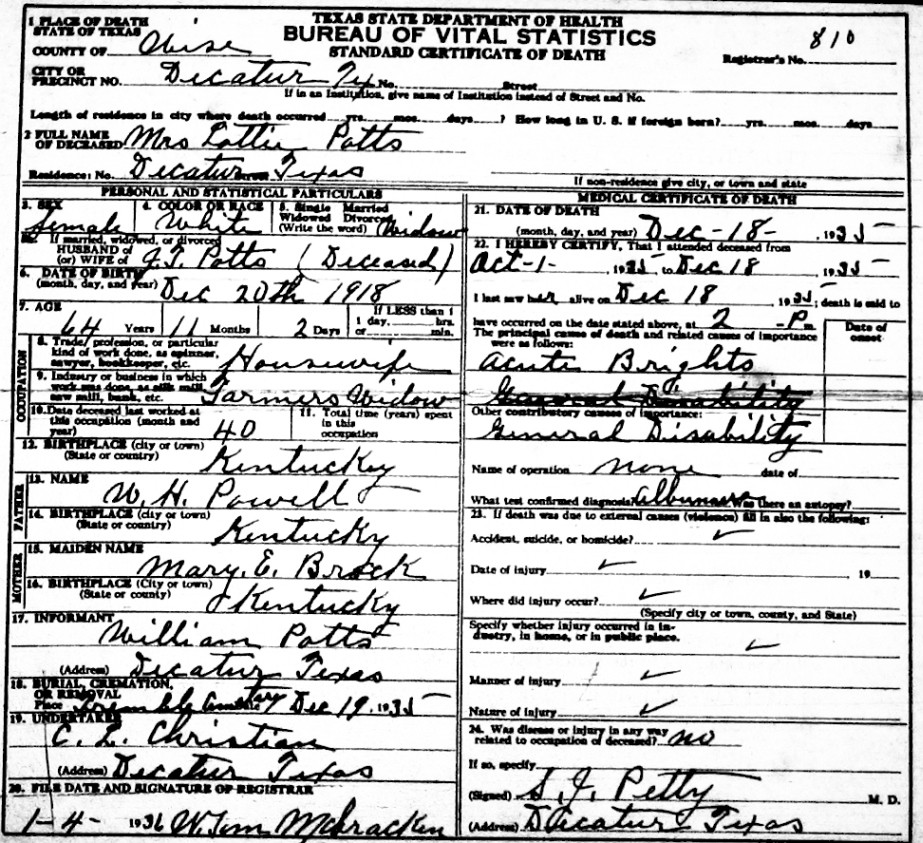 TEXAS STATE DEPARTMENT OF HEALTH
BUREAU OF VITAL STATISTICS
STANDARD CERTIFICATE OF DEATH
1 PLACE OF DEATH
STATE OF TEXAS
COUNTY OF Wise
Registrar's No. 810
CITY OR
PRECINCT NO. Decatur Tx No. Street
If in an Institution, give name of Institution instead of Street and No.
Length of residence in city where death occurred yrs. mos. days ? How long in U. S. if foreign born? yrs. mos. days
2 FULL NAME
OF DECEASED Mrs Lottie Potts
Residence: No. Decatur Street Texas
If non-residence give city, or town and state
PERSONAL AND STATISTICAL PARTICULARS
3. SEX Female
4. COLOR OR RACE White
5. Single Married
Widowed Divorced
(Write the word) Widow
5a. If married, widowed, or divorced
HUSBAND of
(or) WIFE of J. T. Potts (Deceased)
6. DATE OF BIRTH
(month, day, and year) Dec 20th 1918
7. AGE
64 Years 11 Months 2 Days
If LESS than 1
1 day, hrs.
or min.
OCCUPATION
8. Trade, profession, or particular
kind of work done, as spinner,
sawyer, bookkeeper, etc. Housewife
9. Industry or business in which
work was done, as silk mill,
saw mill, bank, etc. Farmers Widow
10. Date deceased last worked at
this occupation (month and
year) 40
11. Total time (years) spent
in this
occupation
12. BIRTHPLACE (city or town)
(State or country) Kentucky
FATHER
13. NAME W. H. Powell
14. BIRTHPLACE (city or town)
(State or country) Kentucky
MOTHER
15. MAIDEN NAME Mary. E. Brock
16. BIRTHPLACE (City or town)
(State or county) Kentucky
17. INFORMANT William Potts
(Address) Decatur Texas
18. BURIAL, CREMATION,
OR REMOVAL
Place Cemetary Dec 19, 1935
19. UNDERTAKER
C. L. Christian
(Address) Decatur Texas
20. FILE DATE AND SIGNATURE OF REGISTRAR
1-4- 1936 W. Tom McCracken
MEDICAL CERTIFICATE OF DEATH
21. DATE OF DEATH
(month, day, and year) Dec-18-, 1935
22. I HEREBY CERTIFY, That I attended deceased from
Oct-1-, 1935, to Dec 18, 1935
I last saw her alive on Dec 18, 1935; death is said to
have occurred on the date stated above, at 2 -P m.
The principal causes of death and related causes of importance
were as follows:
Date of
onset
Acute Brights
General Disability
Other contributory causes of importance:
General Disability
Name of operation none date of
What test confirmed diagnosis? Was there an autopsy?
23. If death was due to external causes (violence) fill in also the following:
Accident, suicide, or homicide? ✓
Date of injury ✓ 19
Where did injury occur? ✓
(Specify city or town, county, and State)
Specify whether injury occurred in in-
dustry, in home, or in public place.
✓
Manner of injury ✓
Nature of injury ✓
24. Was disease or injury in any way
related to occupation of deceased? no
If so, specify
(Signed) S. J. Petty M. D.
(Address) Decatur Texas